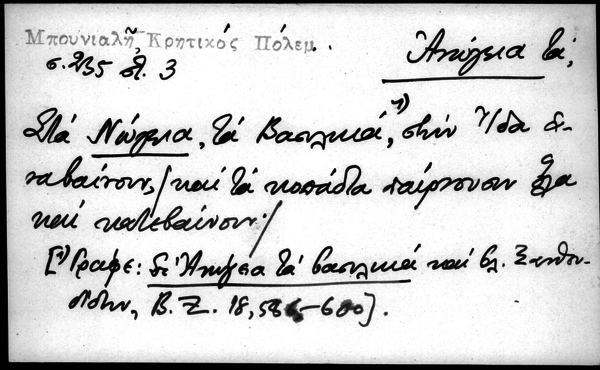 Μπουνιαλῆ, Κρητικός Πόλεμ.
σ. 235 στ. 3
Ἀνώγεια τά,
Στά Νώγεια, τά Βασιλικά,¹) στήν Ἴδα ἀ-
ναβαίνουν,/ καί τά κοπάδια παίρνουσιν ὅλα
καί κατεβαίνουν./
[¹) Γράφε: σ' Ἀνώγεια τά βασιλικά καί βλ. Ξανθου-
δίδην, B.Z. 18, 586-600].